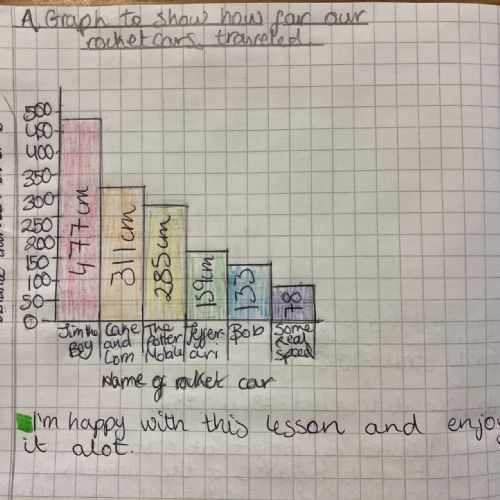 A Graph to show how far our
rocket cars traveled.
500
450
400
350
300
250
200
150
100
50
0
477cm
311cm
285cm
159cm
133
78
Jim the Boy
Cake and Corn
The Potter Noble
Bob
Some Real Speed
Name of rocket car
I'm happy with this lesson and enjoy
it alot.